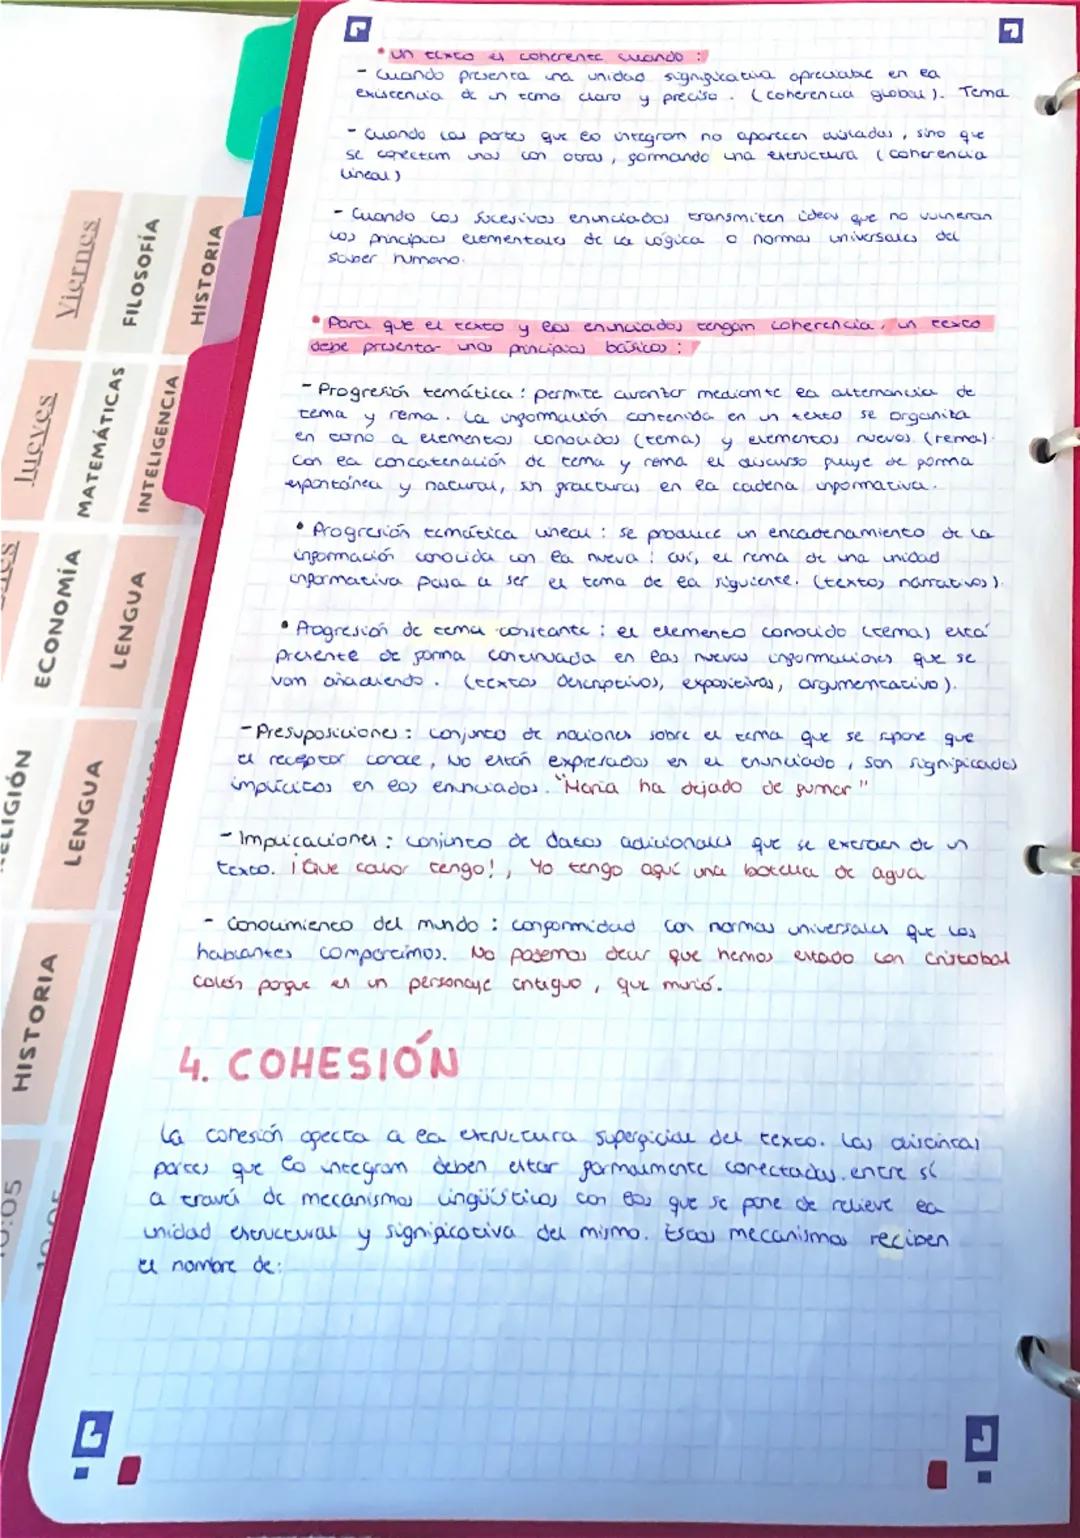 • Un texto es coherente cuando :
- Cuando presenta una unidad significativa apreciable en la
existencia de un tema claro y preciso. (coherencia global). Tema
- Cuando las partes que lo integran no aparecen aisladas, sino que
se conectan unas con otras, formando una estructura (coherencia
lineal)
- Cuando los sucesivos enunciados transmiten ideas que no vulneran
los principios elementales de la lógica o normas universales del
saber humano.
• Para que el texto y los enunciados tengan coherencia, un texto
debe presentar unos principios básicos :
- Progresión temática : permite avanzar mediante la alternancia de
tema y rema. La información contenida en un texto se organiza
en torno a elementos conocidos (tema) y elementos nuevos (rema).
Con la concatenación de tema y rema el discurso fluye de forma
espontánea y natural, sin fracturas en la cadena informativa.
• Progresión temática lineal : se produce un encadenamiento de la
información conocida con la nueva : así, el rema de una unidad
informativa pasa a ser el tema de la siguiente. (textos narrativos).
• Progresión de tema constante : el elemento conocido (tema) está
presente de forma continuada en las nuevas informaciones que se
van añadiendo. (textos descriptivos, expositivos, argumentativo).
- Presuposiciones : conjunto de nociones sobre el tema que se supone que
el receptor conoce, No están expresados en el enunciado, son significados
implícitos en los enunciados. "María ha dejado de fumar"
- Implicaciones : conjunto de datos adicionales que se extraen de un
texto. ¡Que calor tengo!, Yo tengo aquí una botella de agua
- Conocimiento del mundo : conformidad con normas universales que los
hablantes compartimos. No podemos decir que hemos estado con Cristobal
Colón porque es un personaje antiguo, que murió.
4. COHESIÓN
La cohesión afecta a la estructura superficial del texto. Las distintas
partes que lo integran deben estar formalmente conectadas entre sí
a través de mecanismos lingüísticos con los que se pone de relieve la
unidad estructural y significativa del mismo. Estos mecanismos reciben
el nombre de:
Viernes
FILOSOFÍA
HISTORIA
Jueves
MATEMÁTICAS
INTELIGENCIA
ECONOMÍA
LENGUA
LENGUA
HISTORIA